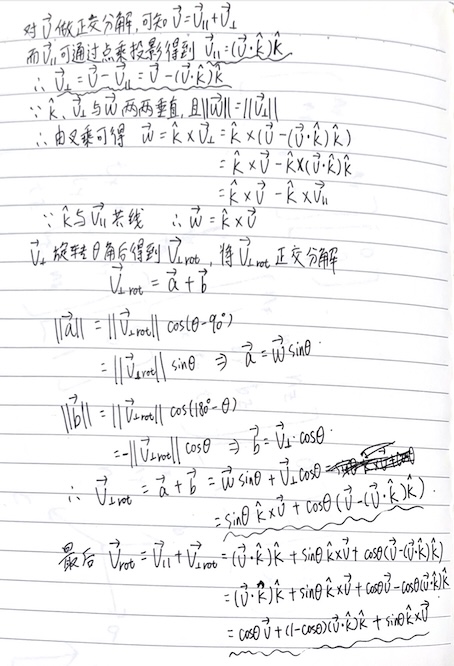 对 v⃗ 做正交分解,可知 v⃗ = v⃗∥ + v⃗⊥
而 v⃗∥ 可通过点乘投影得到 v⃗∥ = (v⃗·k̂)k̂
∴ v⃗⊥ = v⃗ - v⃗∥ = v⃗ - (v⃗·k̂)k̂
∵ k̂、v⃗⊥ 与 w⃗ 两两垂直,且||w⃗|| = ||v⃗⊥||
∴ 由叉乘可得 w⃗ = k̂ × v⃗⊥ = k̂ × (v⃗ - (v⃗·k̂)k̂)
= k̂ × v⃗ - k̂×(v⃗·k̂)k̂
= k̂ × v⃗ - k̂ × v⃗∥
∵ k̂ 与 v⃗∥ 共线 ∴ w⃗ = k̂ × v⃗
v⃗⊥ 旋转 θ 角后得到 v⃗⊥rot,将 v⃗⊥rot 正交分解
v⃗⊥rot = a⃗ + b⃗
||a⃗|| = ||v⃗⊥rot|| cos(θ-90°)
= ||v⃗⊥rot|| sinθ ⇒ a⃗ = w⃗ sinθ
||b⃗|| = ||v⃗⊥rot|| cos(180°-θ)
= -||v⃗⊥rot|| cosθ ⇒ b⃗ = v⃗⊥·cosθ
∴ v⃗⊥rot = a⃗ + b⃗ = w⃗ sinθ + v⃗⊥cosθ
= sinθ k̂ × v⃗ + cosθ (v⃗ - (v⃗·k̂)k̂)
最后 v⃗rot = v⃗∥ + v⃗⊥rot = (v⃗·k̂)k̂ + sinθ k̂×v⃗ + cosθ(v⃗ - (v⃗·k̂)k̂)
= (v⃗·k̂)k̂ + sinθ k̂×v⃗ + cosθv⃗ - cosθ(v⃗·k̂)k̂
= cosθ v⃗ + (1-cosθ)(v⃗·k̂)k̂ + sinθ k̂×v⃗